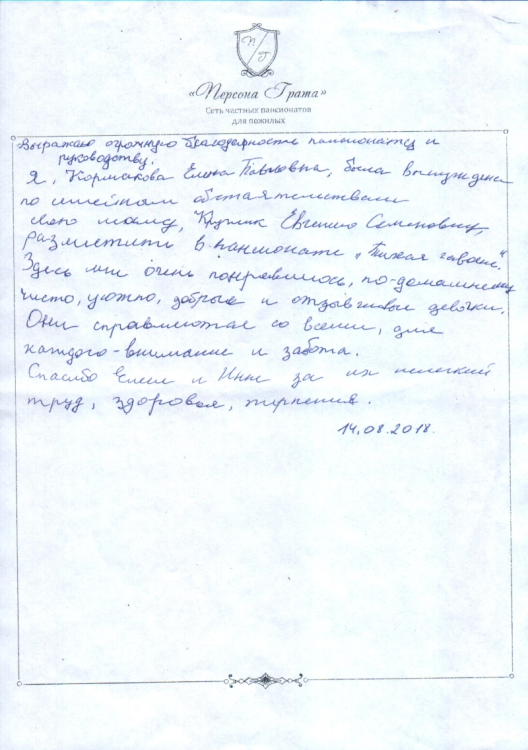 П Г
«Персона Грата»
Сеть частных пансионатов
для пожилых
Выражаю огромную благодарность пансионату и
руководству.
Я, Кормакова Елена Павловна, была вынуждена
по семейным обстоятельствам
свою маму, Евгению Семеновну,
разместить в пансионате „Тихая гавань".
Здесь мне очень понравилось, по-домашнему
чисто, уютно, добрые и отзывчивые девочки.
Они справляются со всеми, для
каждого - внимание и забота.
Спасибо Елене и Инне за их нелегкий
труд, здоровья, терпения.
14.08.2018.